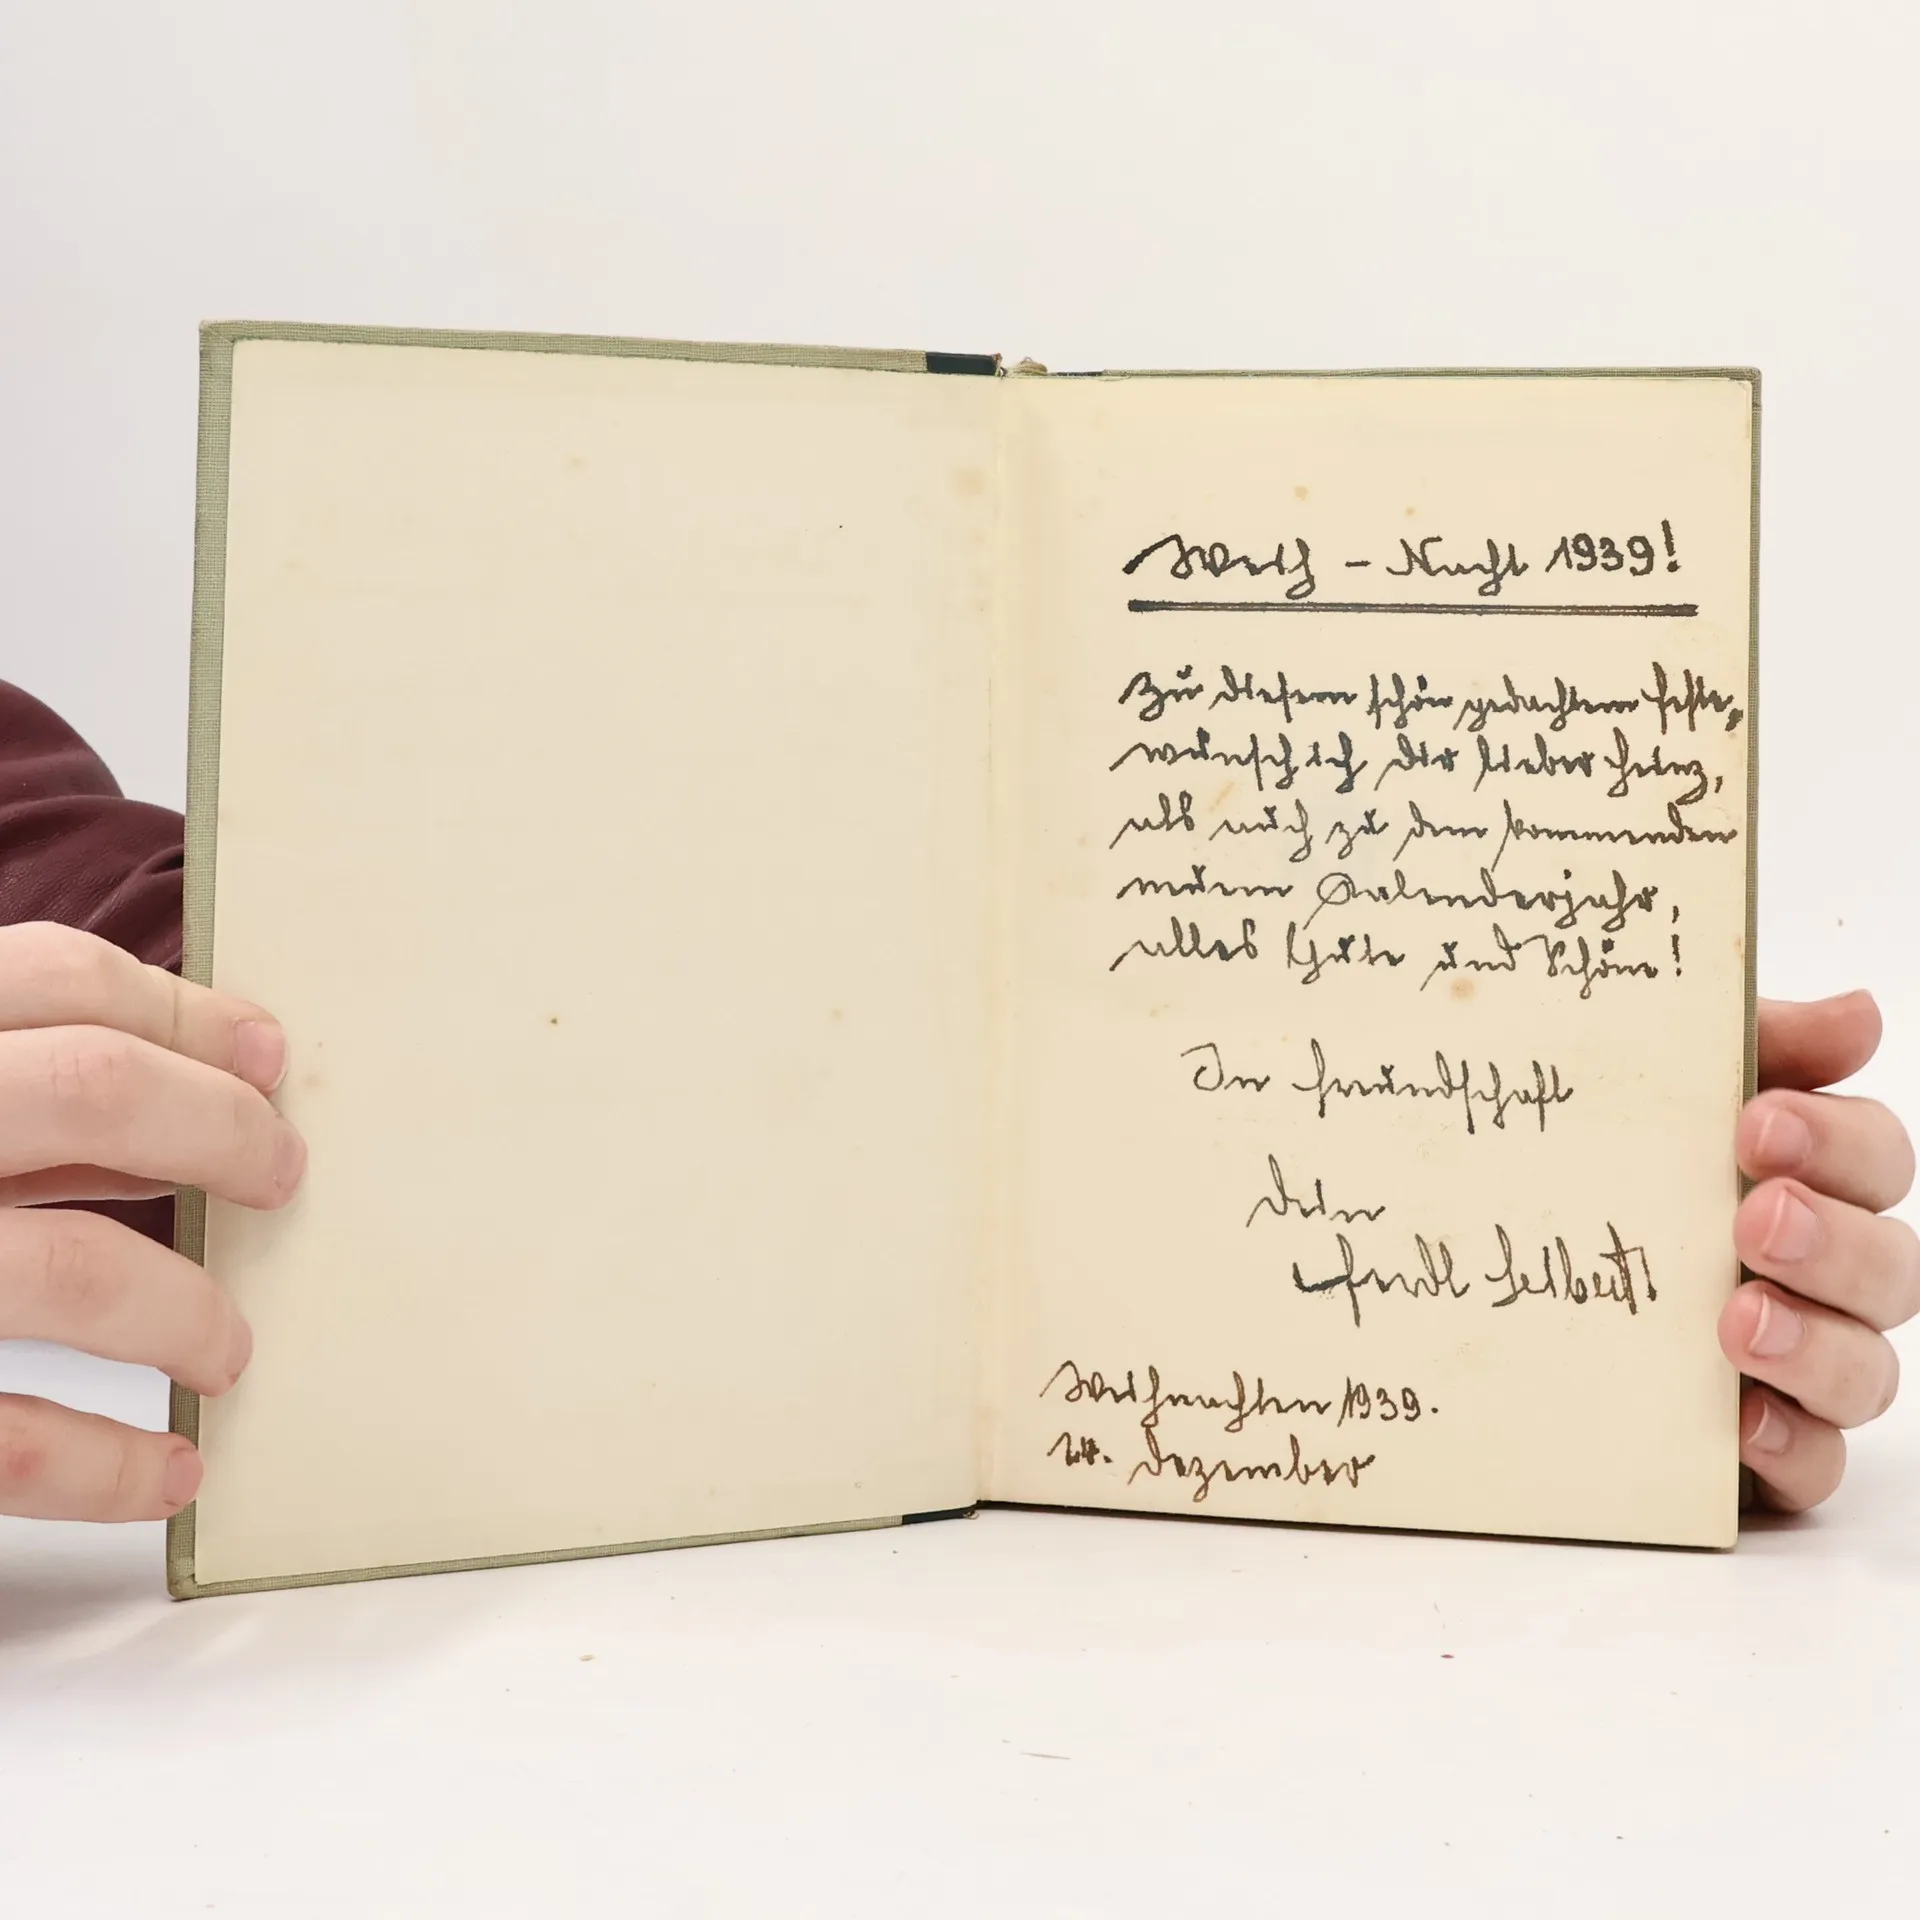 Weih - Nacht 1939!
Zu diesem schön gedachtem Feste,
wünsch ich Dir lieber Heinz,
als auch zu dem kommenden
neuem Kalenderjahr,
alles Gute und Schöne!
In Freundschaft
Dein
Ferdl
Weihnachten 1939.
24. Dezember